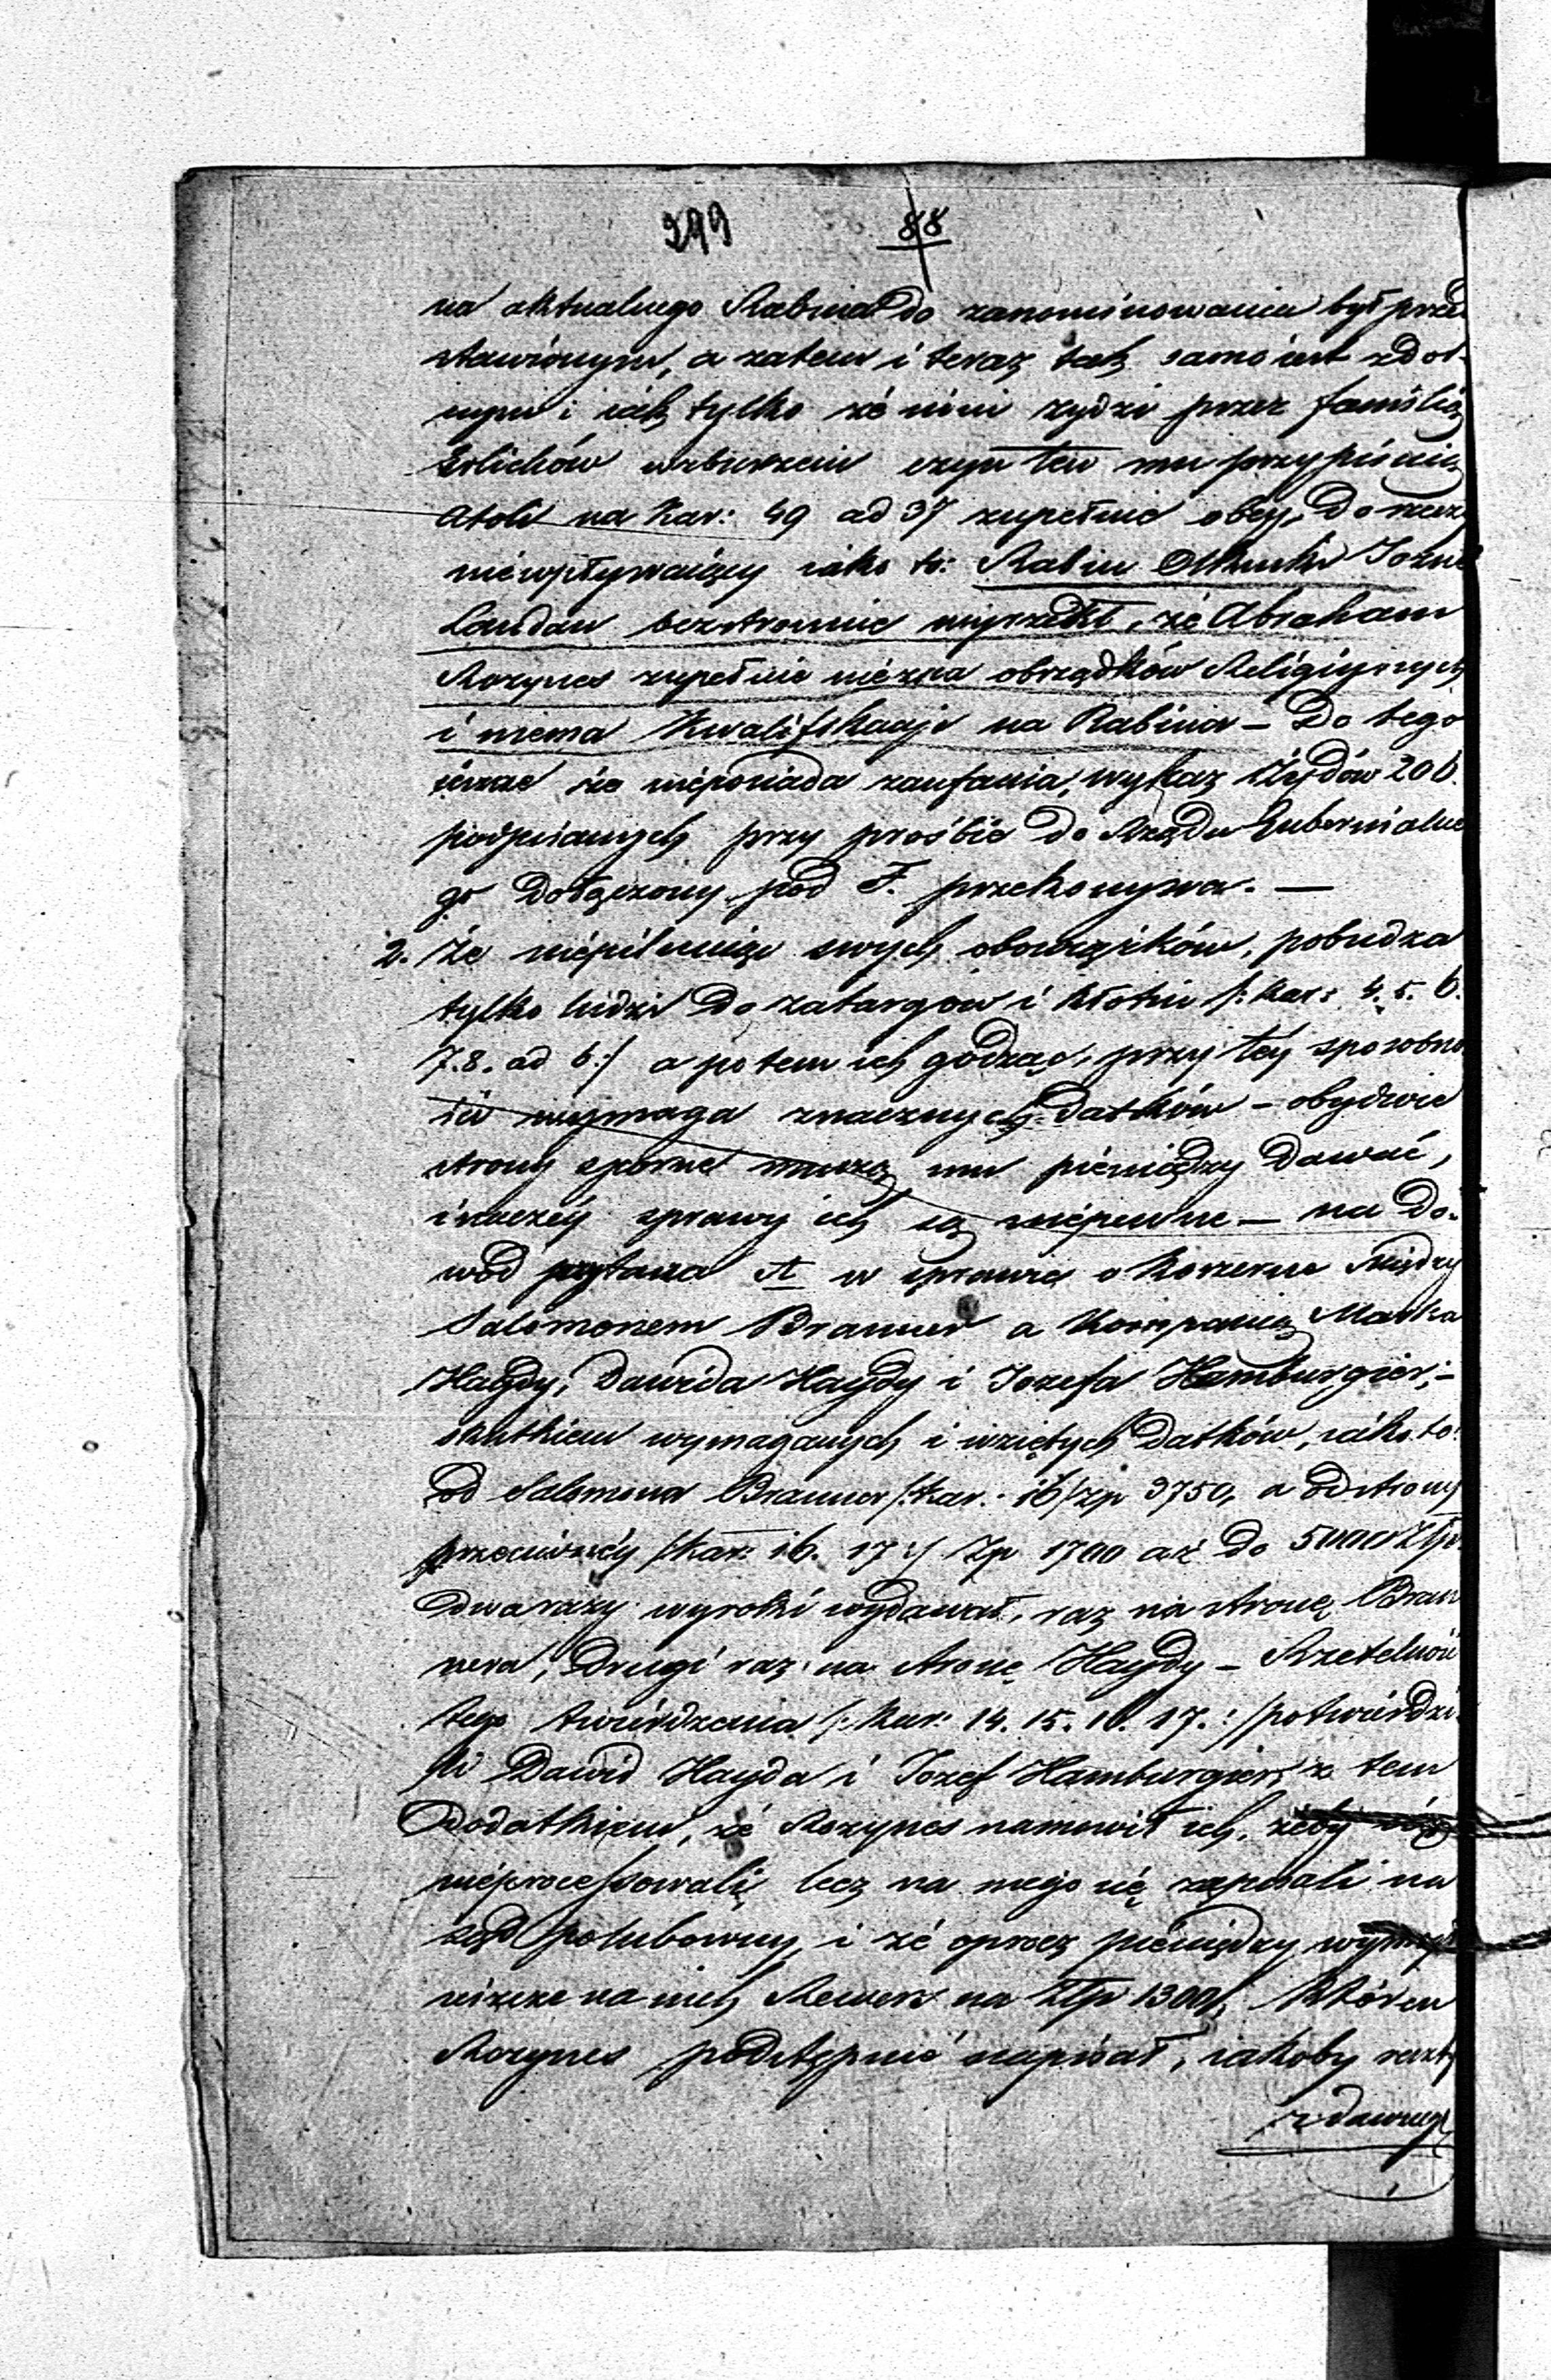 299 88
na aktualnego Rabina do zanominowania był przed
stawionym, a zatem i teraz tak samo iest zdol-
nym i iak tylko że inni żydzi przez familią
Erlichów wzburzeni czyn ten mu przypisuią
Atoli na Kar: 49 ad 37 zupełnie obcy, do rzeczy
niewpływaiący iako to: Rabin Olkuski Jozue
Landau bezstronnie wyrzekł, że Abraham
Rozynes zupełnie niezna obrządków Religiynych
i niema Kwalifikacji na Rabina – Do tego
ieszcze że nieposiada zaufania, wykaz Żydów 206.
podpisanych przy prośbie do Rządu Gubernialne
go dołączony pod F. przekonywa. —
2. Że niepilnuiąc swych obowiązków, pobudza
tylko ludzi do zatargów i kłotni /: Kar: 4. 5. 6.
7. 8. ad 6 :/ a potem ich godząc, przy tey sposobno
ści wymaga znacznych datków – obydwie
strony sporne muszą mu pieniędzy dawać,
inaczéy sprawy ich są niepewne — na do-
wód przytacza A w sprawie o Koszerne między
Salomonem Brauner a Kompanią Marka
Haydy, Dawida Haydy i Jozefa Hamburgier; –
skutkiem wymaganych i wziętych datków, iako to:
od Salomona Brauner /: Kar: 16 / zp 3750, a od strony
przeciwnéy /: Kar: 16. 17 :/ Zp 1700 aż do 5000 Złp.
dwa razy wyroki wydawał, raz na stronę Brau
nera, drugi raz na stronę Haydy – Rzetelność
tego twierdzenia /: Kar: 14. 15. 16. 17. :/ potwierdzi
li Dawid Hayda i Jozef Hamburgier, z tem
dodatkiem, że Rozynes namowił ich, żeby się
nieprocessowali, lecz na niego się zapisali na
sąd polubowny, i że oprocz pieniędzy
na nich Rewers na Złp 1300, którem
Rozynes podstępnie napisał, iakoby
z dawney